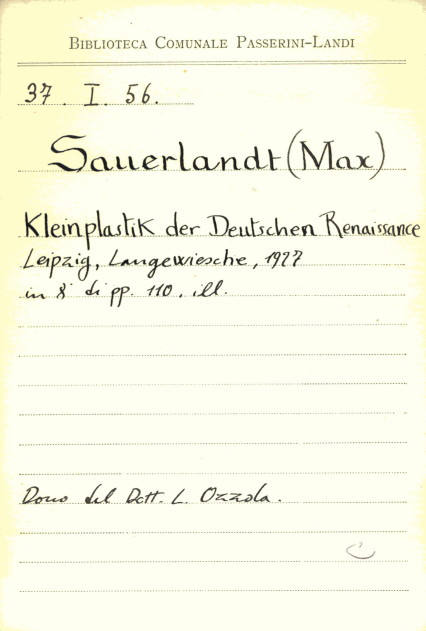 BIBLIOTECA COMUNALE PASSERINI-LANDI
37. I. 56.
Sauerlandt (Max)
Kleinplastik der Deutschen Renaissance
Leipzig, Langewiesche, 1927
in 8° di pp. 110. ill.
Dono del Dott. L. Ozzola.
C